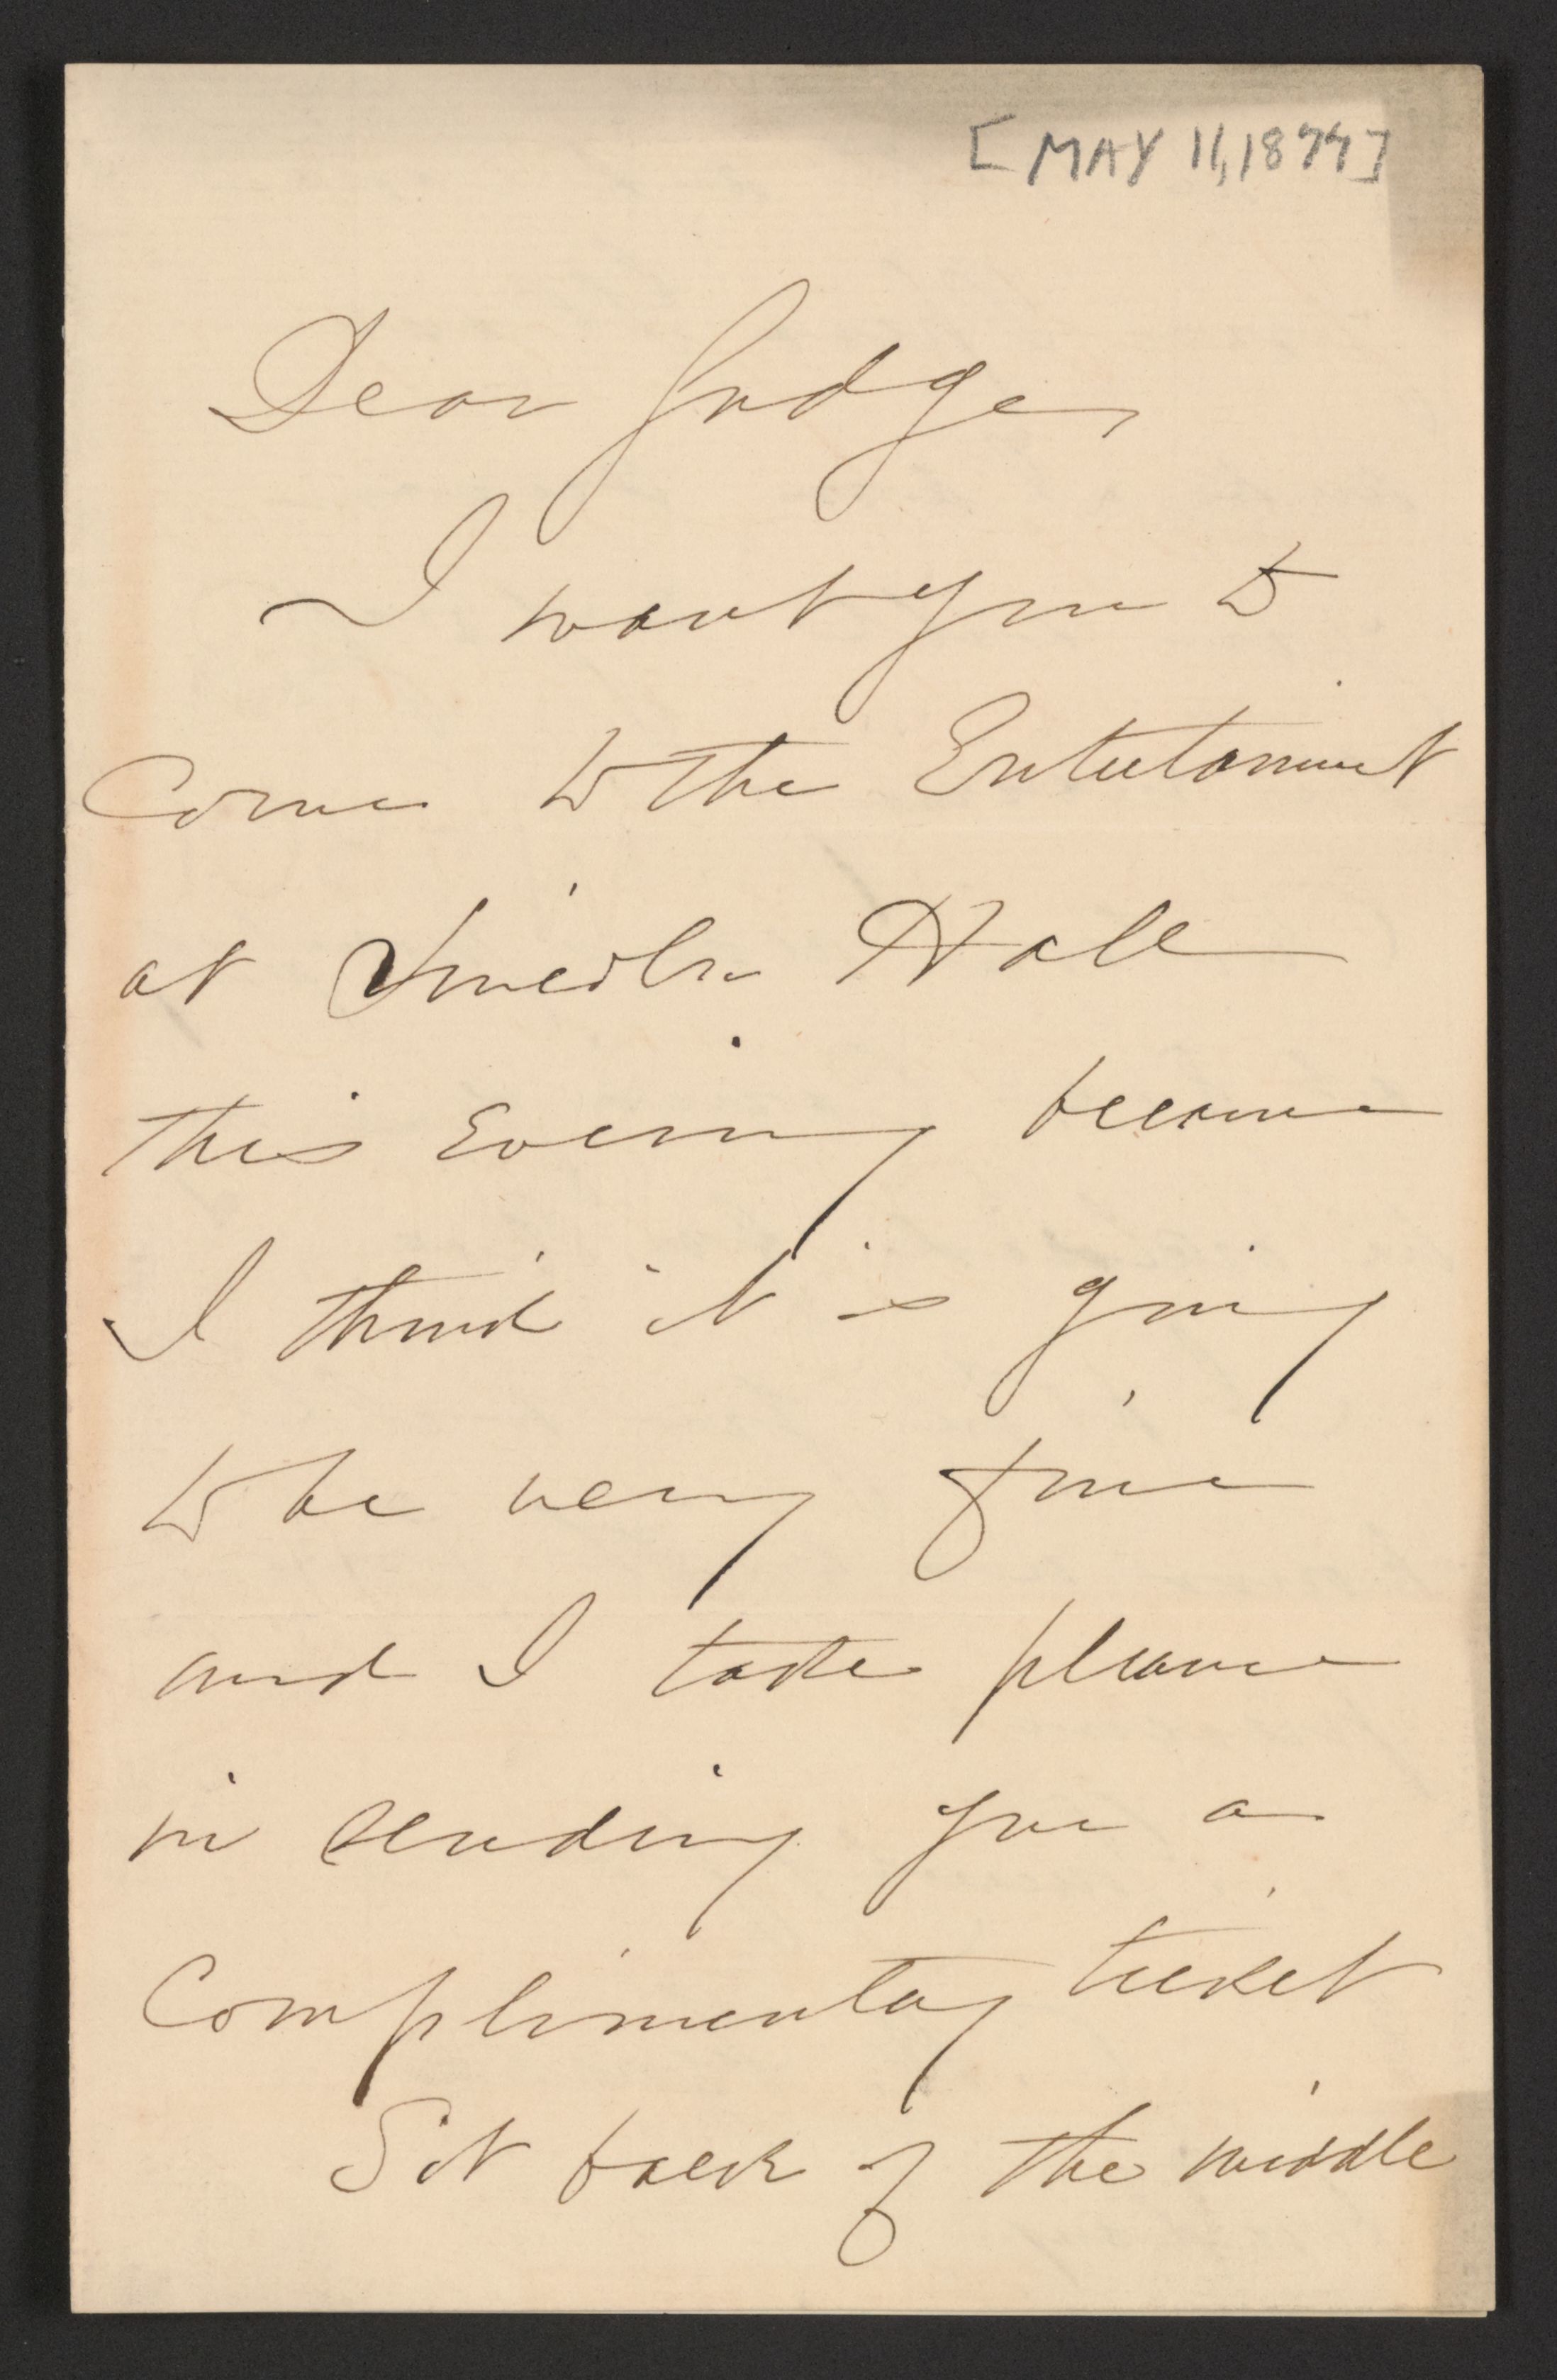 [MAY 11, 1877]
Dear Judge,
I want you to
Come to the Entertainment
at Lincoln Hall
this Evening because
I think it is going
to be very fine
and I take pleasure
in sending you a
Complimentary ticket
Sit back of the middle